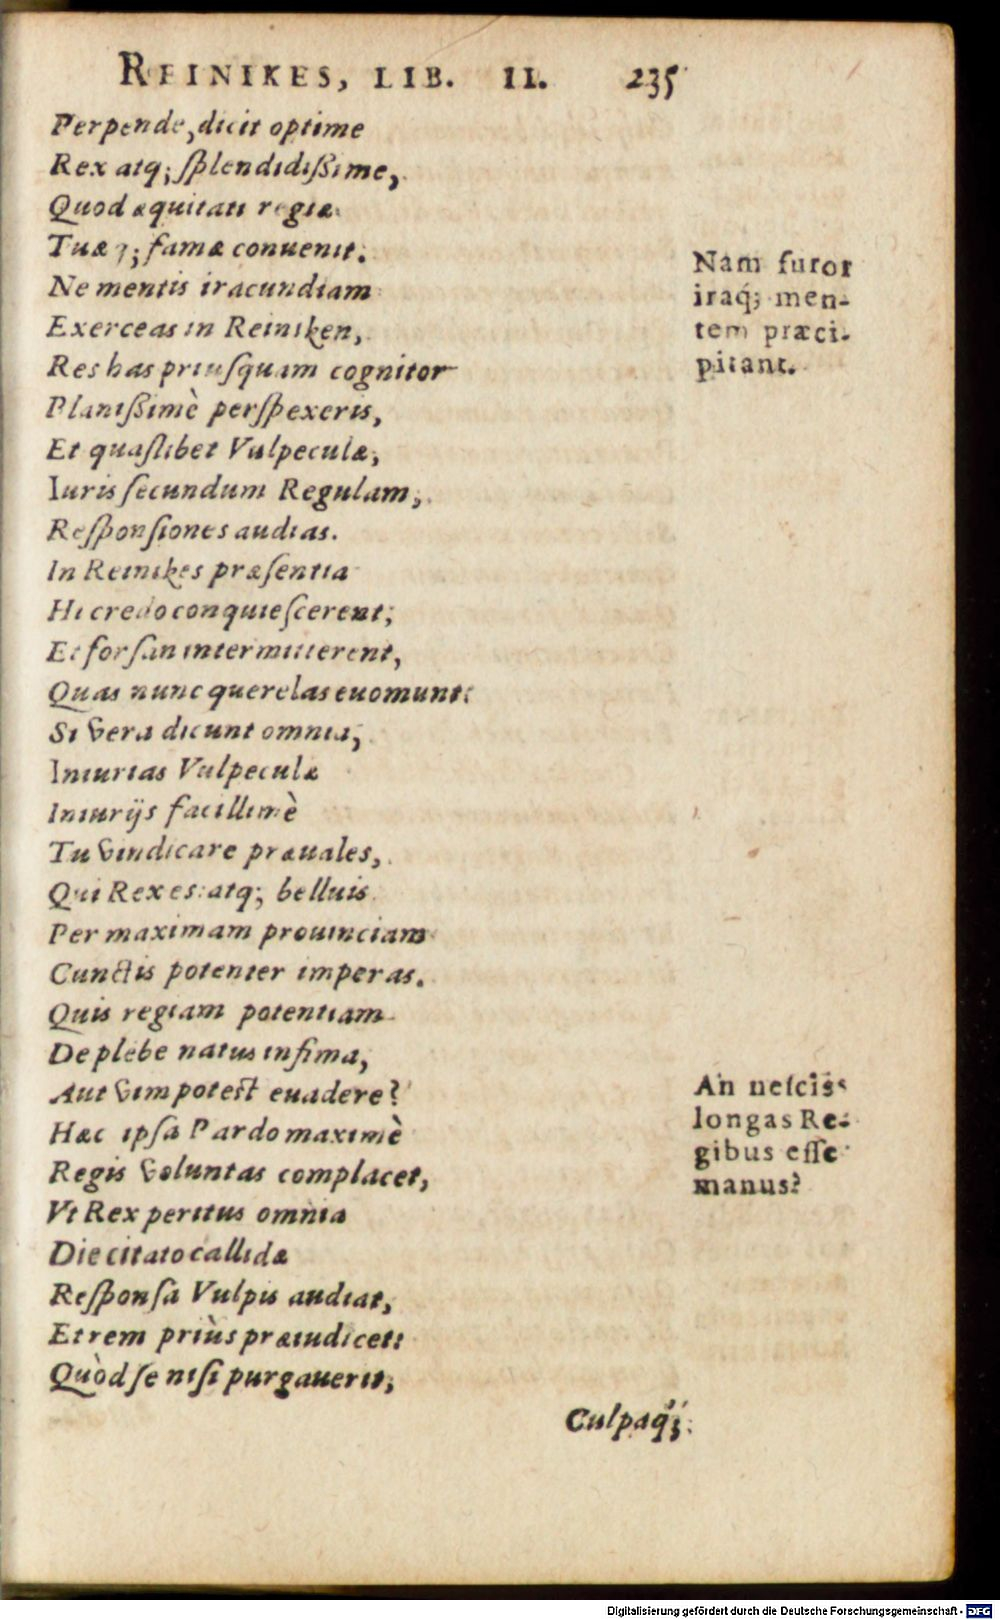 REINIKES, LIB. II. 235
Perpende, dicit optime
Rex atq; ſplendidißime,
Quod æquitati regiæ
Tuæq; famæ conuenit:
Ne mentis iracundiam
Exerceas in Reiniken,
Res has priuſquam cognitor
Planißimè perſpexeris,
Et quaſlibet Vulpeculæ,
Iuris ſecundum Regulam,
Reſponſiones audias.
In Reinikes præſentia
Hi credo conquieſcerent;
Et forſan intermitterent,
Quas nunc querelas euomunt:
Si vera dicunt omnia,
Iniurias Vulpeculæ
Iniurijs facillimè
Tu vindicare præuales,
Qui Rex es: atq; belluis
Per maximam prouinciam
Cunctis potenter imperas.
Quis regiam potentiam
De plebe natus infima,
Aut vim potest euadere?
Hæc ipſa Pardo maximè
Regis voluntas complacet,
Vt Rex peritus omnia
Die citato callidæ
Reſponſa Vulpis audiat,
Et rem priùs præiudicet:
Quòd ſe niſi purgauerit,
Culpaq́;
Nam furor
iraq́; men-
tem præci-
pitant.
An neſcis
longas Re-
gibus eſſe
manus?
Digitalisierung gefördert durch die Deutsche Forschungsgemeinschaft - DFG